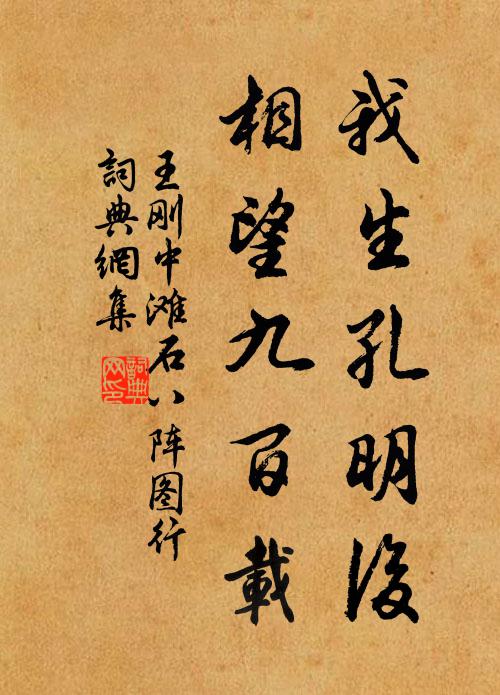 我生孔明後
相望九百載
王刚中滩石八阵图行
詞典網集
詞典
网印